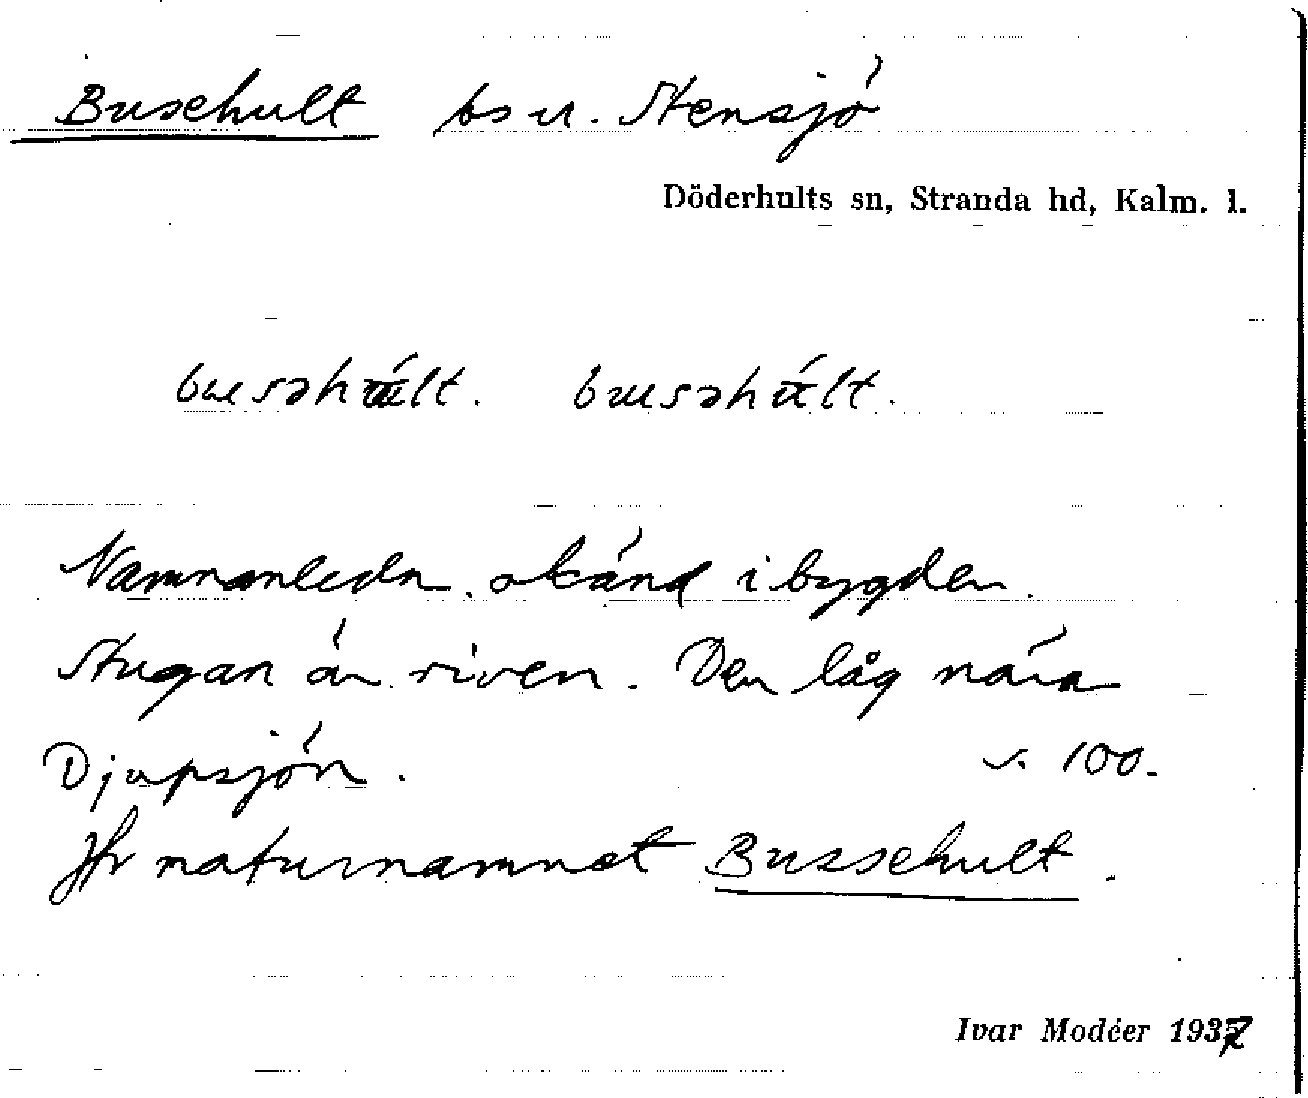 Busehult bs u. Stensjö
Döderhults sn, Stranda hd, Kalm. l.
busəhúlt. busəhúlt.
Namnanledn. okänd i bygden.
Stugan är riven. Den låg nära
Djupsjön. s. 100.
Jfr naturnamnet Bussehult.
Ivar Modéer 1937